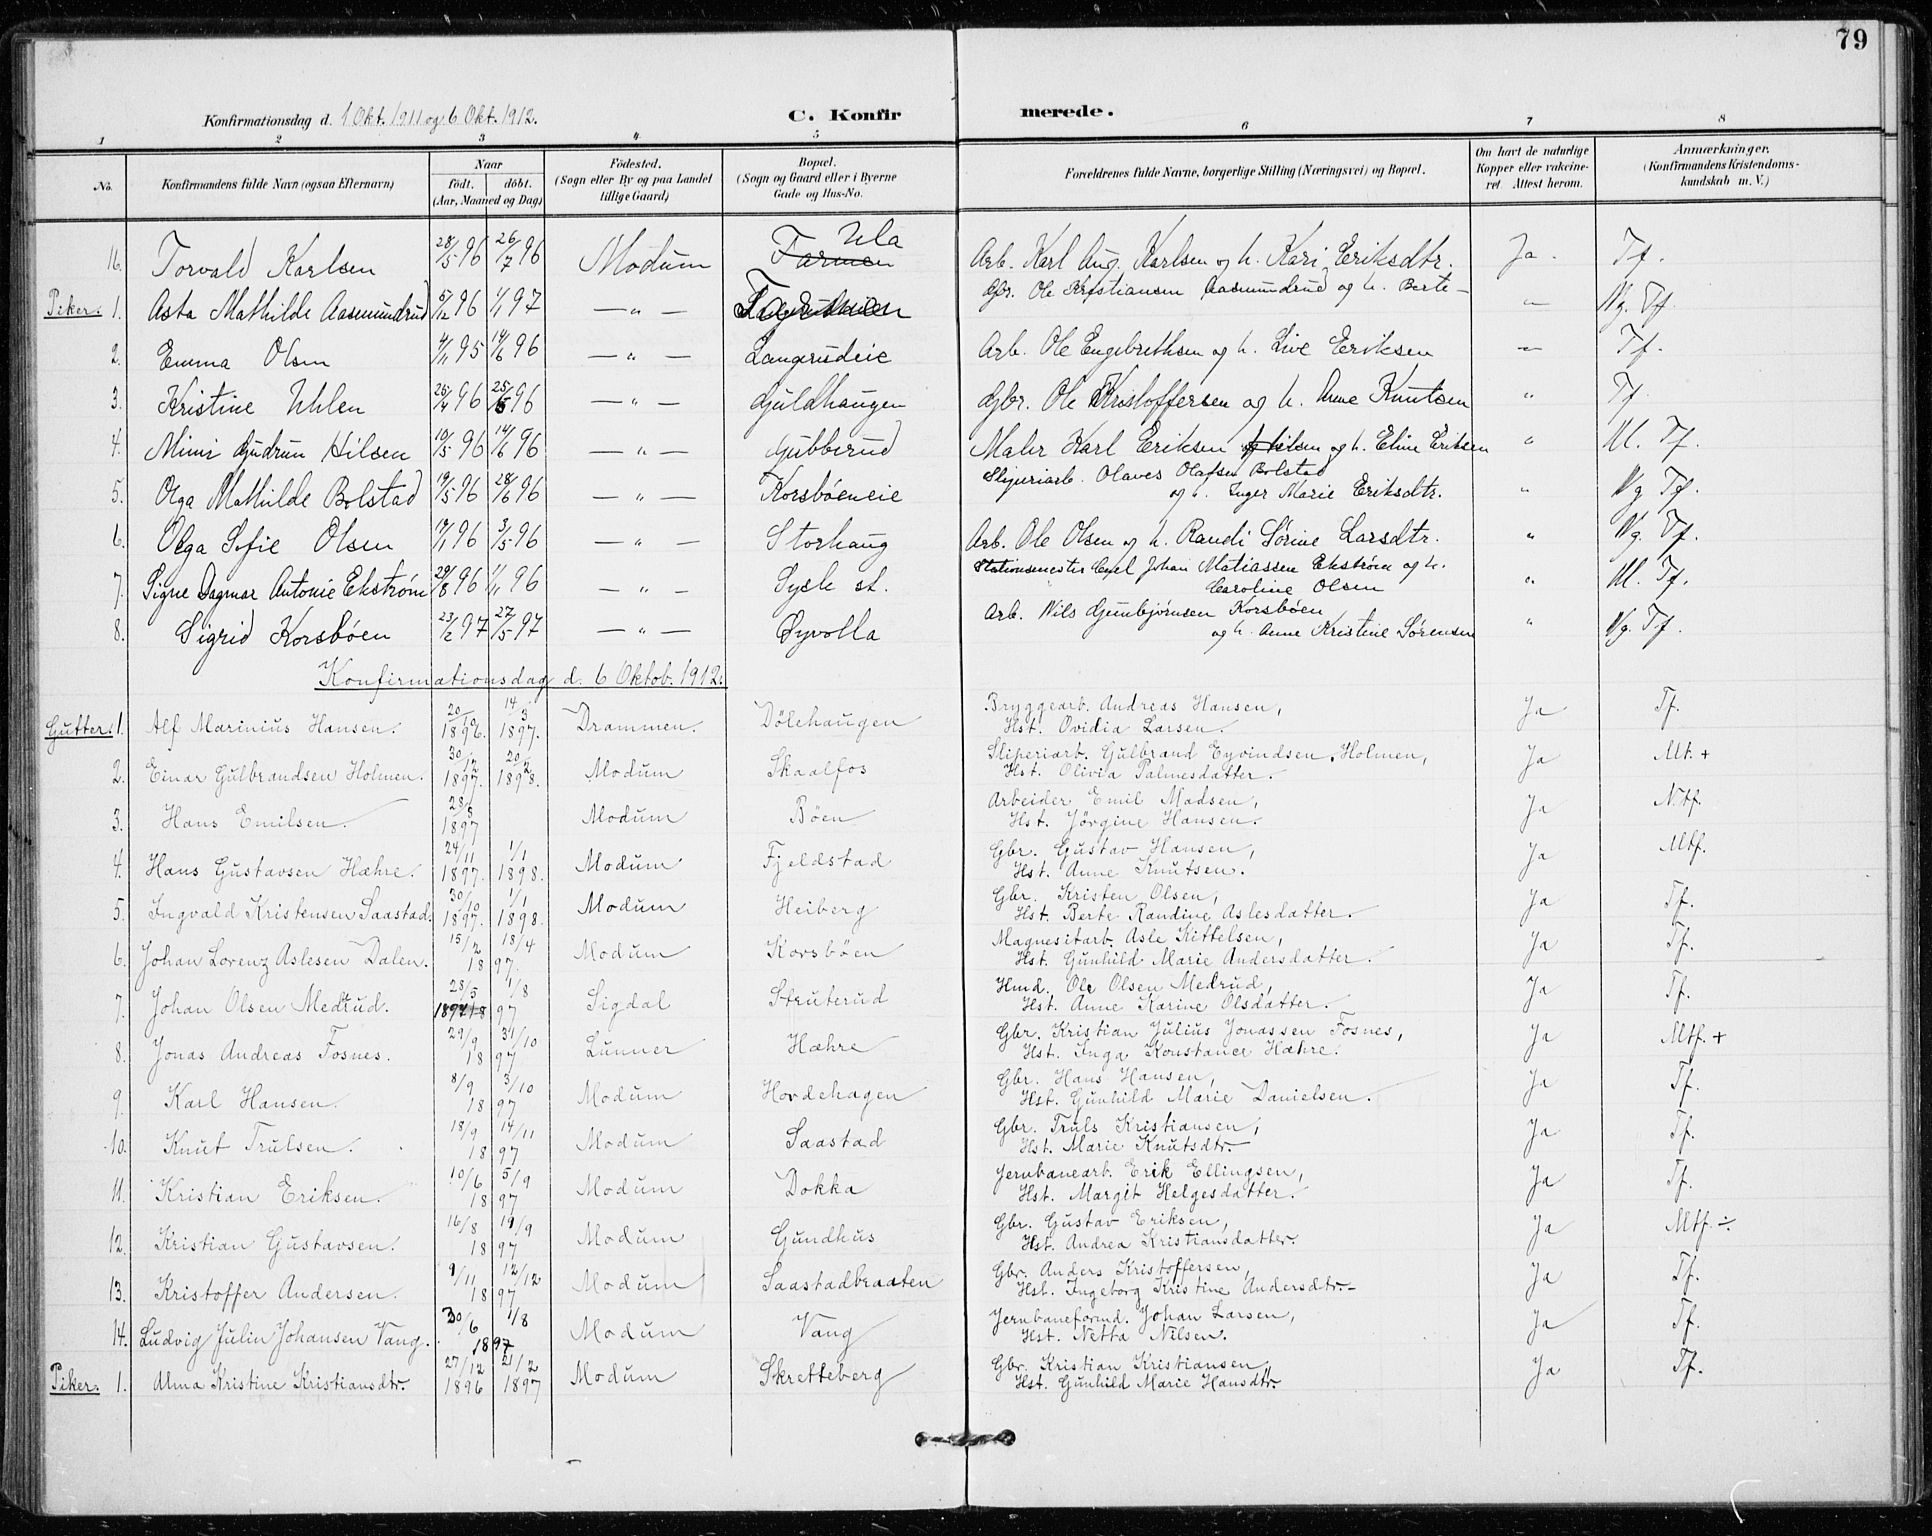 79
Konfirmationsdag d. 1 Okt. 1911 og 6 Okt. 1912. C. Konfirmerede.
1 2 3 4 5 6 7 8
No. Konfirmandens fulde Navn (ogsaa Efternavn) Naar födt. döbt. (Aar, Maaned og Dag) Födested. (Sogn eller By og paa Landet tillige Gaard) Bopæl. (Sogn og Gaard eller i Byerne Gade og Hus-No. Forældrenes fulde Navne, borgerlige Stilling (Næringsvei) og Bopæl. Om havt de naturlige Kopper eller vakcineret Attest herom. Anmærkninger. (Konfirmandens Kristendomskundskab m. V.)
16. Torvald Karlsen 28/5 96 26/7 96 Modum Farmen Ula Arb. Karl Aug. Karlsen og h. Kari Eriksdtr. Ja. Tf.
Piker. 1. Asta Mathilde Aasmundrud 5/12 96 1/1 97 — " — Gbr. Ole Kristiansen Aasmundrud og h. Berte — " Ng. Tf.
2. Emma Olsen 4/11 95 14/6 96 — " — Langerudeie Arb. Ole Engebrethsen og h. Live Eriksen — Tf.
3. Kristine Uhlen 25/4 96 25/5 96 — " — Guldhaugen Gbr. Ole Kristoffersen og h. Anne Knutsen " Tf.
4. Mimi Gudrun Hilsen 10/5 96 14/6 96 — " — Gubberud Maler Karl Eriksen Hilsen og h. Eline Eriksen " M. Tf.
5. Olga Mathilde Bolstad 19/5 96 28/6 96 — " — Korsböeneie Sliperiarb. Olaves Olafsen Bolstad
og h. Inger Marie Eriksdtr. " Ng Tf.
6. Olga Sofie Olsen 19/1 96 3/5 96 — " — Storhaug Arb. Ole Olsen og h. Randi Sörine Larsdtr. " Ng. Tf.
7. Signe Dagmar Antonie Ekström 29/8 96 1/11 96 — " — Sysle st. Stationsmester Carl Johan Matiassen Ekström og h.
Caroline Olsen " M. Tf.
8. Sigrid Korsböen 23/2 97 27/5 97 — " — Øyvolla Arb. Nils Gunbjørnsen Korsbøen
og h. Anne Kristine Sørensen " Ng. Tf.
Konfirmationsdag d. 6 Oktob. 1912.
Gutter. 1. Alf Marinius Hansen. 20/10 1896. 14/3 1897. Drammen. Dölehaugen Bryggearb. Andreas Hansen,
Hst. Ovidia Larsen. Ja Tf.
2. Einar Gulbrandsen Holmen. 30/12 1897. 20/2 1898. Modum Skaalfos Sliperiarb. Gulbrand Eyvindsen Holmen,
Hst. Olivia Palmesdatter. Ja Mt. +
3. Hans Emilsen. 28/8 1897 Modum Böen Arbeider Emil Madsen,
Hst. Jörgine Hansen. Ja N.tf.
4. Hans Gustavsen Hæhre. 24/11 1897. 1/1 1898. Modum Fjeldstad Gbr. Gustav Hansen,
Hst. Anne Knutsen. Ja Mtf.
5. Ingvald Kristensen Saastad. 30/10 1897. 1/1 1898. Modum Heiberg Gbr. Kristen Olsen,
Hst. Berte Randine Aslesdatter. Ja Tf.
6. Johan Lorenz Aslesen Dalen. 15/2 18/4 1897. Modum Korsböen Magnesitarb. Asle Kittelsen,
Hst. Gunhild Marie Andersdatter. Ja Tf.
7. Johan Olsen Medrud. 28/5 1/8 1897 Sigdal Struterud Hmd. Ole Olsen Medrud,
Hst. Anne Karine Olsdatter. Ja Tf.
8. Jonas Andreas Fosnes. 29/9 31/10 1897 Lunner Hæhre Gbr. Kristian Julius Jonassen Fosnes,
Hst. Inga Konstance Hæhre. Ja Mtf. +
9. Karl Hansen. 8/9 3/10 1897 Modum Hovdehagen Gbr. Hans Hansen,
Hst. Gunhild Marie Danielsen. Ja Tf.
10. Knut Trulsen. 18/9 14/11 1897 Modum Saastad Gbr. Truls Kristiansen,
Hst. Marie Knutsdtr. Ja Tf.
11. Kristian Eriksen. 10/6 5/9 1897 Modum Dokka Jernbanearb. Erik Ellingsen,
Hst. Margit Helgesdatter. Ja Tf.
12. Kristian Gustavsen. 16/8 19/9 1897 Modum Gundhus Gbr. Gustav Eriksen,
Hst. Andrea Kristiansdatter. Ja Mtf. ÷
13. Kristoffer Andersen. 9/11 12/12 1897 Modum Saastadbraaten Gbr. Anders Kristoffersen,
Hst. Ingeborg Kristine Andersdtr. Ja Tf.
14. Ludvig Julin Johansen Vang. 30/6 1/8 1897 Modum Vang Jernbaneformd. Johan Larsen,
Hst. Netta Nilsen. Ja Tf.
Piker. 1. Alma Kristine Kristiansdtr. 27/12 1896 21/2 1897 Modum Skretteberg Gbr. Kristian Kristiansen,
Hst. Gunhild Marie Hansdtr. Ja Tf.